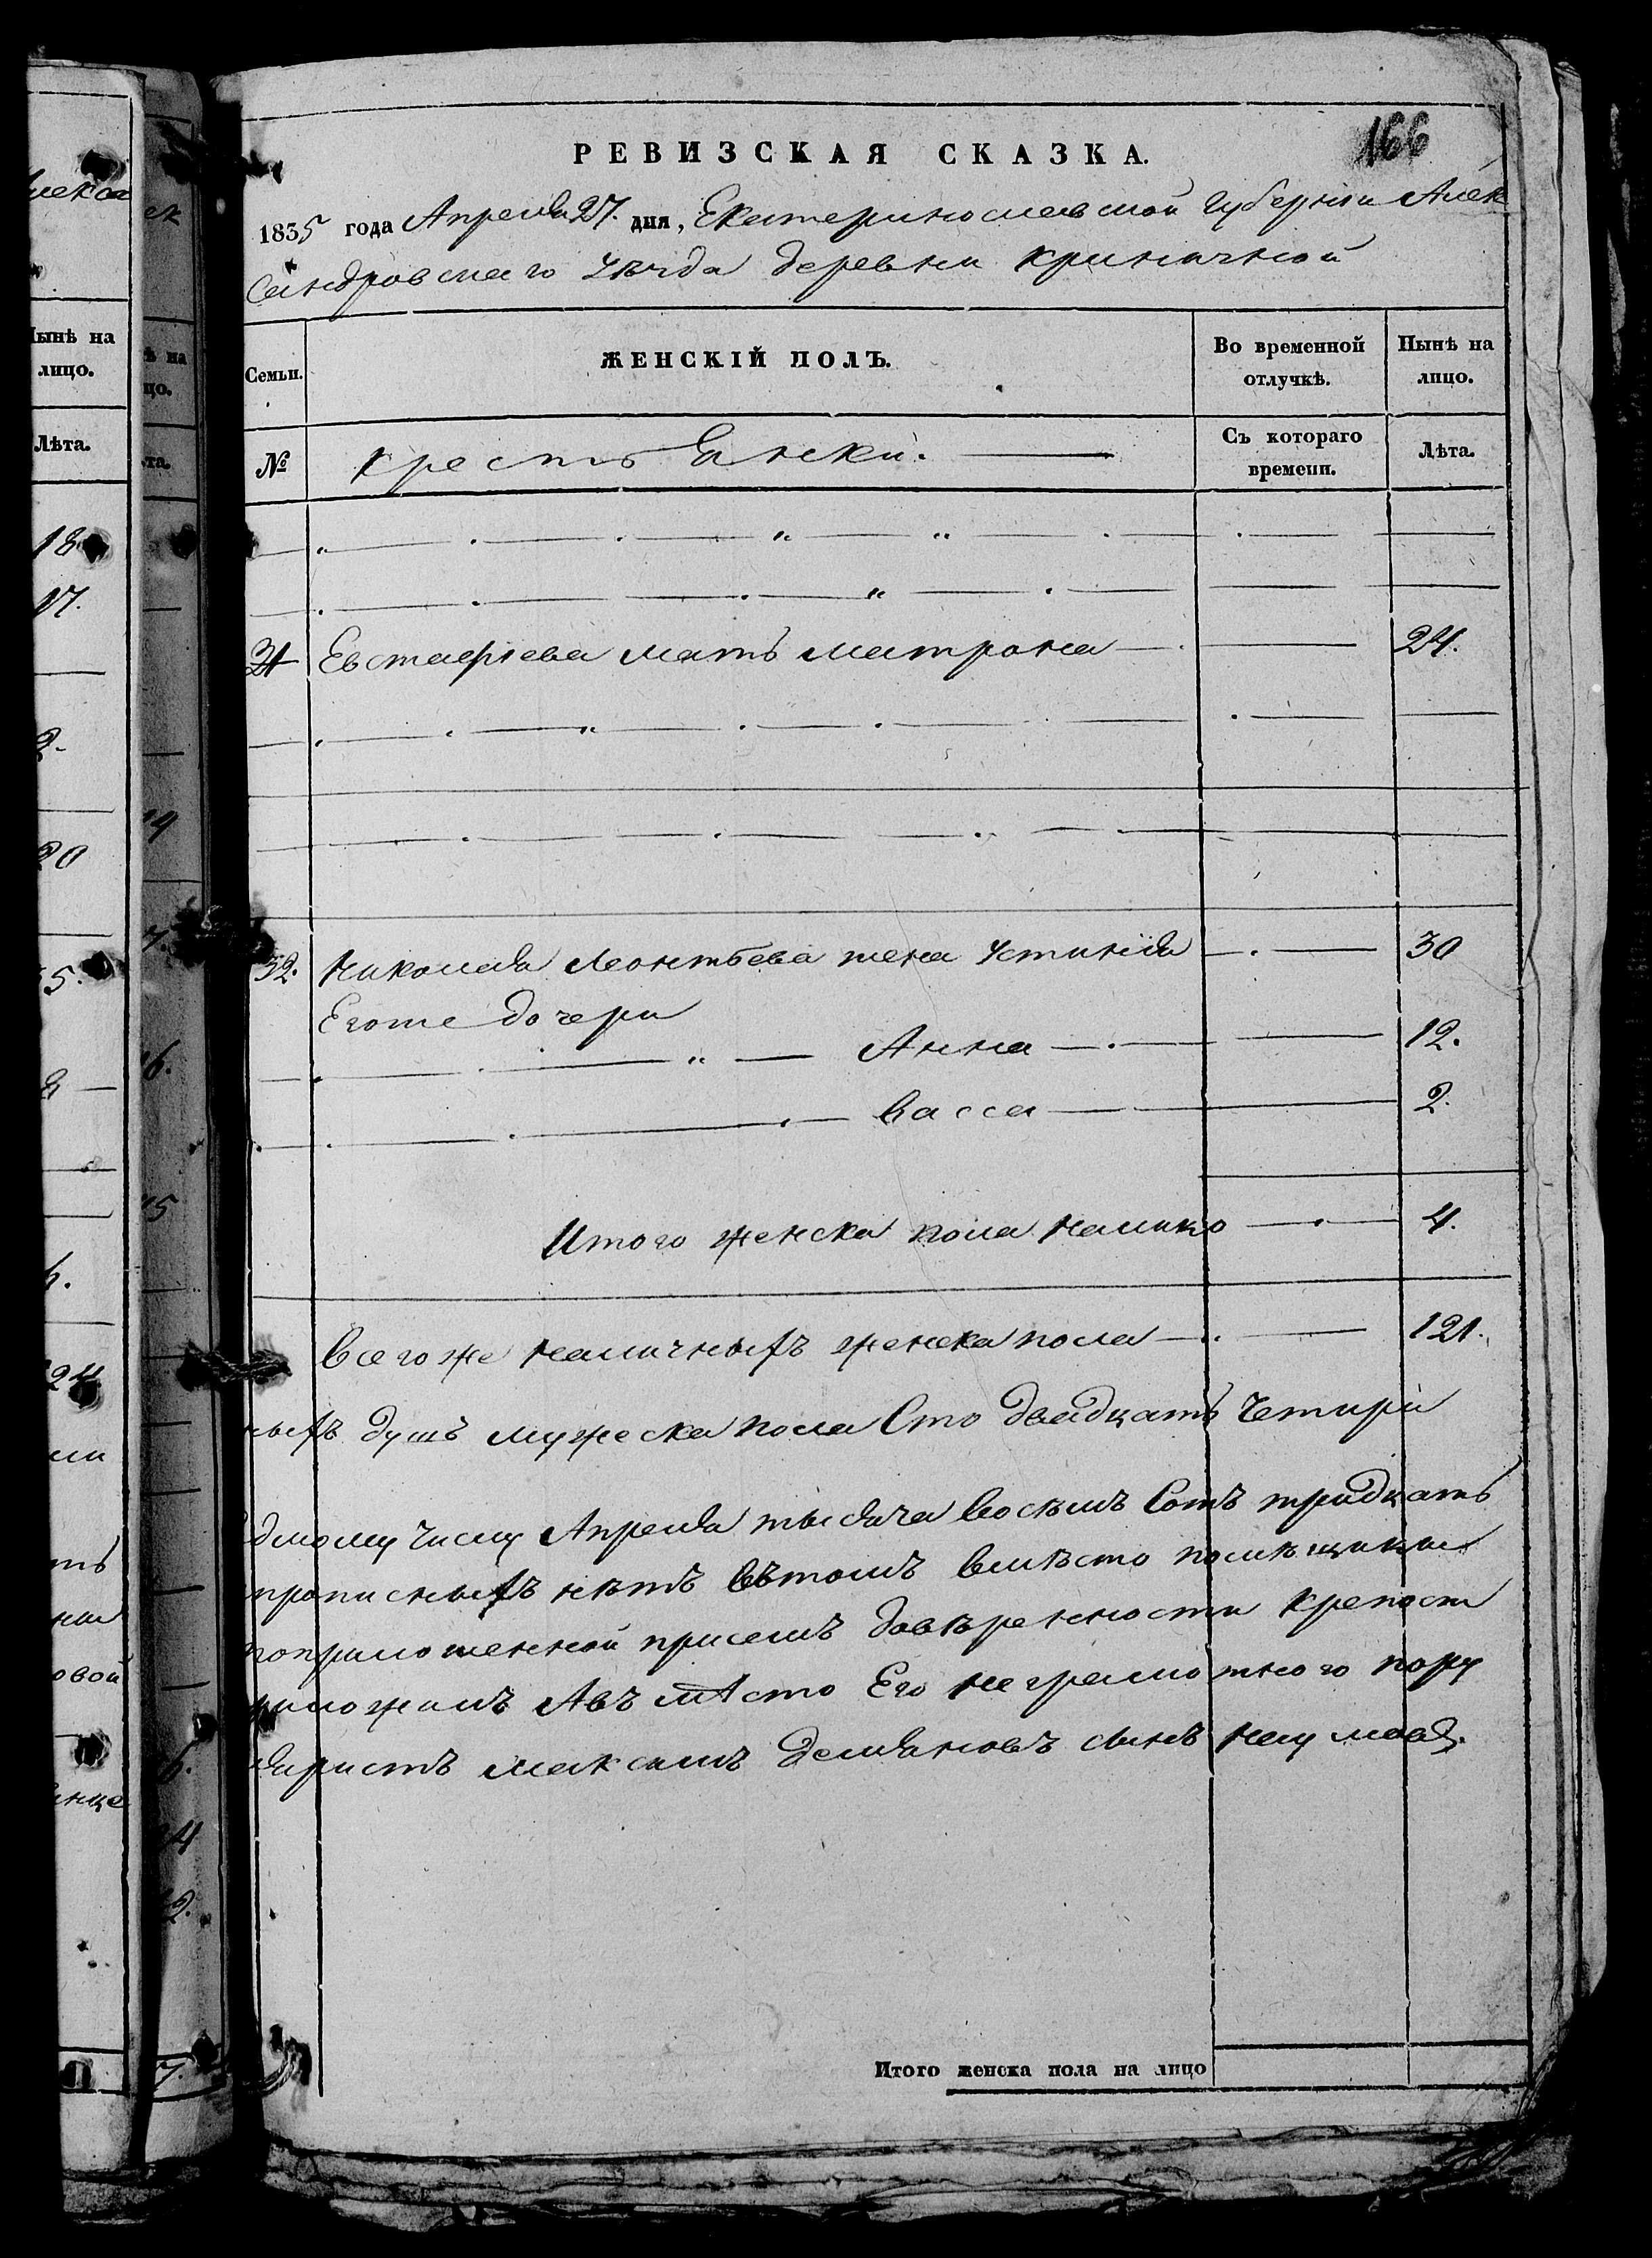 166
РЕВИЗСКАЯ СКАЗКА.
1835 года Апреля 27. дня, Екатеринославской губернии Алек
сандровскаго уѣзда деревни Криничной
Семьи. ЖЕНСКІЙ ПОЛЪ. Во временной отлучкѣ. Нынѣ на лицо.
№ крестьянски. Съ котораго времени. Лѣта.
31 Евстафіева мать матрона 24.
32. Николая Леонтьева жена Устинія 30
Егоже дочери
Анна 12.
Васса 2.
Итого женска пола налицо 4.
Всего же наличныхъ женска пола 121.
ныхъ душъ мужеска пола Сто двадцать Четыри
дмому числу Апреля тысяча восѣмъ Сотъ тридцать
прописныхъ нѣтъ вътомъ вмѣсто помѣщика
поприложенной присемъ довѣренности крепосн
приложилъ Авъ мѣсто Его неграмотного пору
Максимъ Демяновъ сынъ
Итого женска пола на лицо
Нынѣ на
лицо.
Лѣта.
18
17.
20
24
овой